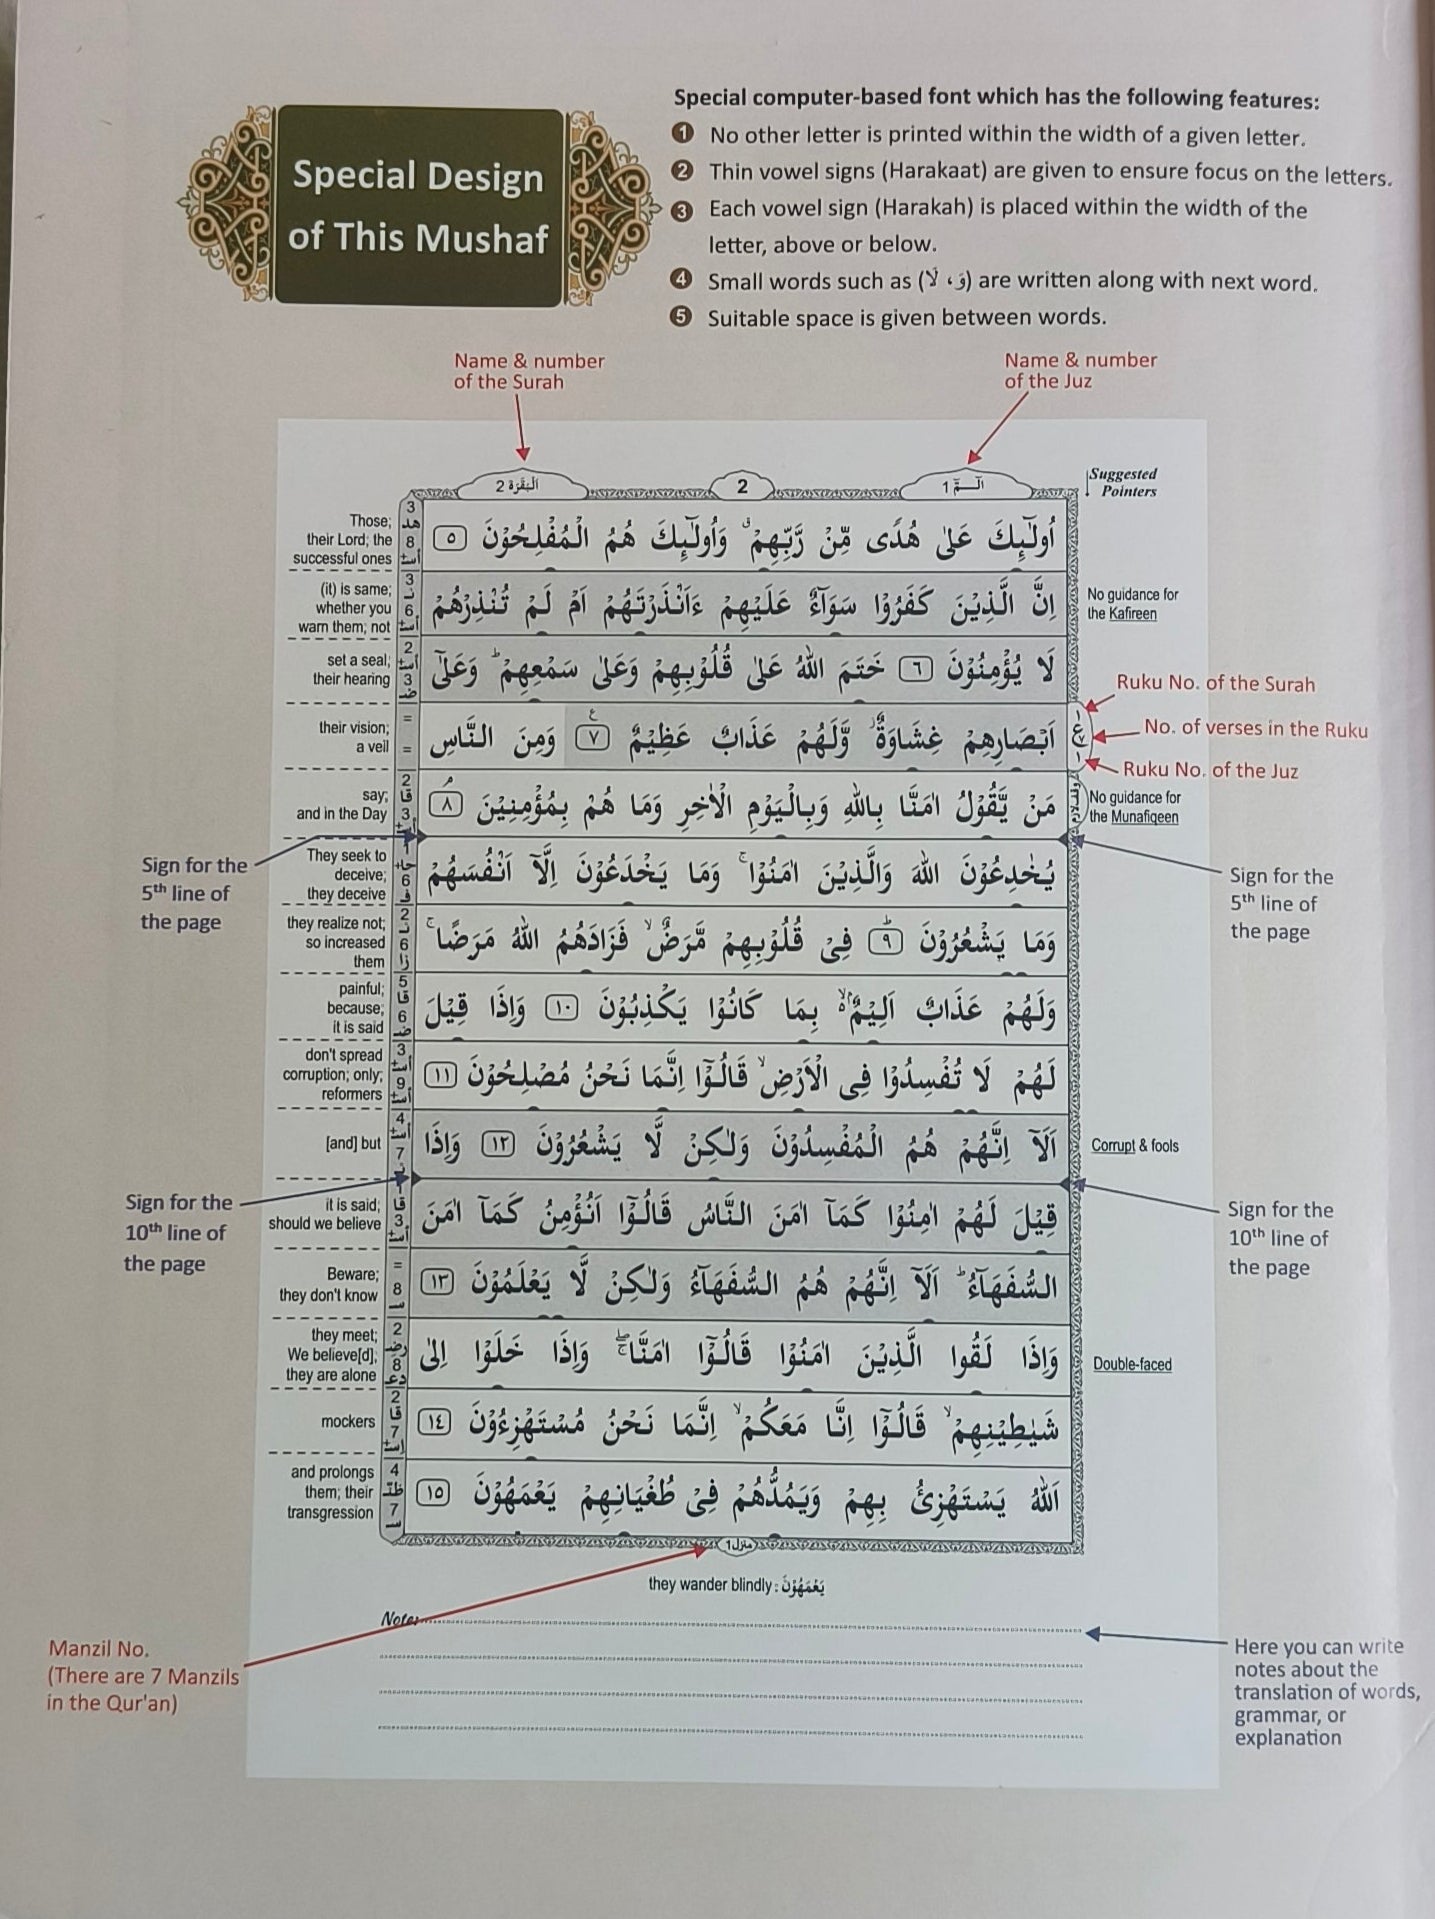 Special Design
of This Mushaf
Special computer-based font which has the following features:
1 No other letter is printed within the width of a given letter.
2 Thin vowel signs (Harakaat) are given to ensure focus on the letters.
3 Each vowel sign (Harakah) is placed within the width of the
letter, above or below.
4 Small words such as (وَ، لَا) are written along with next word.
5 Suitable space is given between words.
Name & number
of the Surah
Name & number
of the Juz
الٓـمّٓ 1
2
اَلْبَقَرَة 2
Suggested
Pointers
اُولٰٓئِكَ عَلٰى هُدًى مِّنْ رَّبِّهِمْ ۗ وَاُولٰٓئِكَ هُمُ الْمُفْلِحُوْنَ ٥
Those;
their Lord; the
successful ones
اِنَّ الَّذِيْنَ كَفَرُوْا سَوَآءٌ عَلَيْهِمْ ءَاَنْذَرْتَهُمْ اَمْ لَمْ تُنْذِرْهُمْ
(it) is same;
whether you
warn them; not
No guidance for
the Kafireen
لَا يُؤْمِنُوْنَ ٦ خَتَمَ اللّٰهُ عَلٰى قُلُوْبِهِمْ وَعَلٰى سَمْعِهِمْ ؕ وَعَلٰٓى
set a seal;
their hearing
Ruku No. of the Surah
اَبْصَارِهِمْ غِشَاوَةٌ ؗ وَّلَهُمْ عَذَابٌ عَظِيْمٌ ٧ وَمِنَ النَّاسِ
their vision;
a veil
No. of verses in the Ruku
Ruku No. of the Juz
مَنْ يَّقُوْلُ اٰمَنَّا بِاللّٰهِ وَبِالْيَوْمِ الْاٰخِرِ وَمَا هُمْ بِمُؤْمِنِيْنَ ٨
say;
and in the Day
No guidance for
the Munafiqeen
Sign for the
5th line of
the page
Sign for the
5th line of
the page
يُخٰدِعُوْنَ اللّٰهَ وَالَّذِيْنَ اٰمَنُوْا ۚ وَمَا يَخْدَعُوْنَ اِلَّاۤ اَنْفُسَهُمْ
They seek to
deceive;
they deceive
وَمَا يَشْعُرُوْنَ ٩ فِىْ قُلُوْبِهِمْ مَّرَضٌ ۙ فَزَادَهُمُ اللّٰهُ مَرَضًا ۚ
they realize not;
so increased
them
وَلَهُمْ عَذَابٌ اَلِيْمٌ ۢ ۙ بِمَا كَانُوْا يَكْذِبُوْنَ ١٠ وَاِذَا قِيْلَ
painful;
because;
it is said
لَهُمْ لَا تُفْسِدُوْا فِى الْاَرْضِ ۙ قَالُوْٓا اِنَّمَا نَحْنُ مُصْلِحُوْنَ ١١
don't spread
corruption; only;
reformers
اَلَاۤ اِنَّهُمْ هُمُ الْمُفْسِدُوْنَ وَلٰكِنْ لَّا يَشْعُرُوْنَ ١٢ وَاِذَا
[and] but
Corrupt & fools
Sign for the
10th line of
the page
Sign for the
10th line of
the page
قِيْلَ لَهُمْ اٰمِنُوْا كَمَاۤ اٰمَنَ النَّاسُ قَالُوْٓا اَنُؤْمِنُ كَمَاۤ اٰمَنَ
it is said;
should we believe
السُّفَهَآءُ ؕ اَلَاۤ اِنَّهُمْ هُمُ السُّفَهَآءُ وَلٰكِنْ لَّا يَعْلَمُوْنَ ١٣
Beware;
they don't know
وَاِذَا لَقُوا الَّذِيْنَ اٰمَنُوْا قَالُوْٓا اٰمَنَّا ۖۚ وَاِذَا خَلَوْا اِلٰى
they meet;
We believe[d];
they are alone
Double-faced
شَيٰطِيْنِهِمْ ۙ قَالُوْٓا اِنَّا مَعَكُمْ ۙ اِنَّمَا نَحْنُ مُسْتَهْزِءُوْنَ ١٤
mockers
اَللّٰهُ يَسْتَهْزِئُ بِهِمْ وَيَمُدُّهُمْ فِىْ طُغْيَانِهِمْ يَعْمَهُوْنَ ١٥
and prolongs
them; their
transgression
منزل 1
they wander blindly : يَعْمَهُوْنَ
Note:
Manzil No.
(There are 7 Manzils
in the Qur'an)
Here you can write
notes about the
translation of words,
grammar, or
explanation